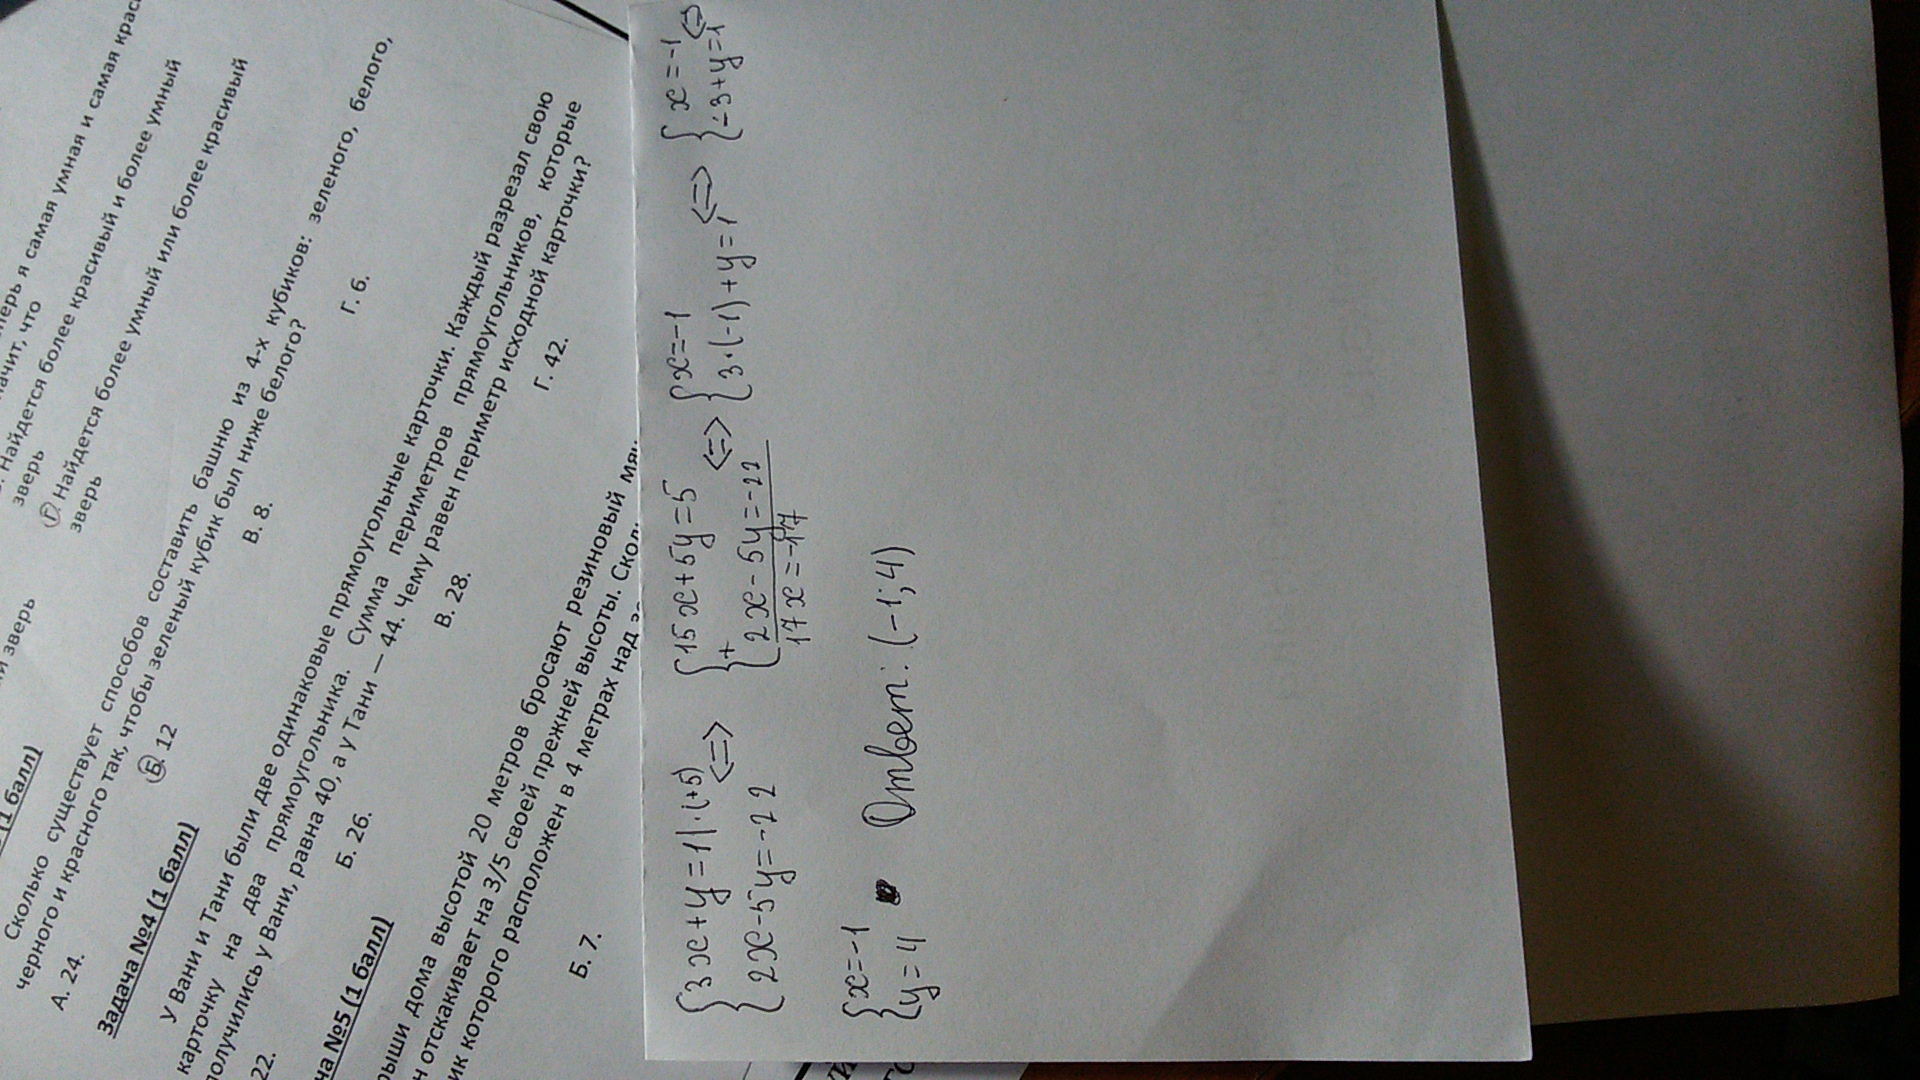 теперь я самая умная и самая
значит, что
Найдется более красивый и более умный
зверь
Г. Найдется более умный или более красивый
зверь
зверь
(1 балл)
Сколько существует способов составить башню из 4-х кубиков: зеленого, белого,
черного и красного так, чтобы зеленый кубик был ниже белого?
А. 24. Б. 12 В. 8. Г. 6.
Задача №4 (1 балл)
У Вани и Тани были две одинаковые прямоугольные карточки. Каждый разрезал свою
карточку на два прямоугольника. Сумма периметров прямоугольников, которые
получились у Вани, равна 40, а у Тани — 44. Чему равен периметр исходной карточки?
22. Б. 26. В. 28. Г. 42.
№5 (1 балл)
крыши дома высотой 20 метров бросают резиновый
отскакивает на 3/5 своей прежней высоты.
которого расположен в 4 метрах над
Б. 7.
{3x+y=1|·(+5) <=> {15x+5y=5 <=> {x=-1 <=> {x=-1 <=>
{2x-5y=-22 + {2x-5y=-22 {3·(-1)+y=1 {-3+y=1
17x=-17
{x=-1
{y=4 Ответ: (-1;4)